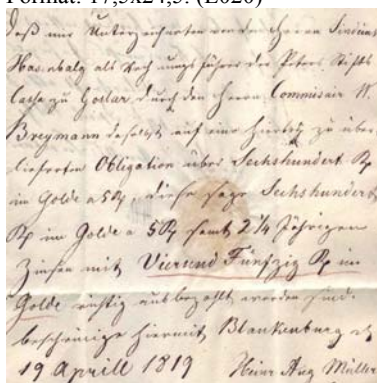 Format: 17,5x24,5. (E020)
Daß mir Unterzeichneten von dem Herrn
Hasenbalg als Rechnungsführer der Peters Stifts
Casse zu Goslar, durch den Herrn Commissair W.
Breymann daselbst auf eine hierbey zu über
lieferten Obligation über Sechshundert Rp
im Golde a 5 Rp, diese sage Sechshundert
Rp im Golde a 5 Rp samt 2 1/4 Jährigen
Zinsen mit Vierund Fünfzig Rp im
Golde richtig ausbezahlt worden sind.
bescheinige hiermit Blankenburg
19 Aprill 1819 Heinr Aug Müller